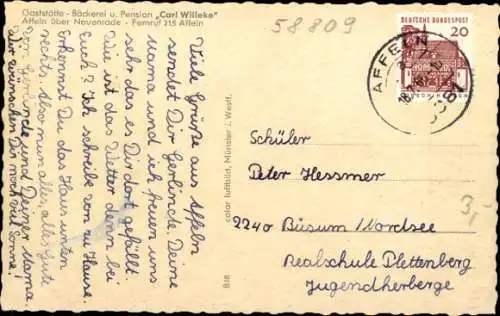 Gaststätte - Bäckerei u. Pension „Carl Willeke"
Affeln über Neuenrade - Fernruf 215 Affeln
58809
Viele Grüße aus Affeln
sendet Dir Gerlinde. Deine
Mama und ich freuen uns
sehr das es Dir dort gefällt.
Wie ist das Wetter denn bei
Euch? Ich schreibe von zu Hause.
Erkennst Du das Haus unten
rechts. Also nun alles, alles Gute
von Gerlinde und Deiner Mama.
Wir wünschen Dir noch viel Sonne!
color luftbild, Münster i. Westf.
DEUTSCHE BUNDESPOST
20
AFFELN
Schüler
Peter Hessmer
2240 Büsum Nordsee
Realschule Plettenberg
Jugendherberge
3,-